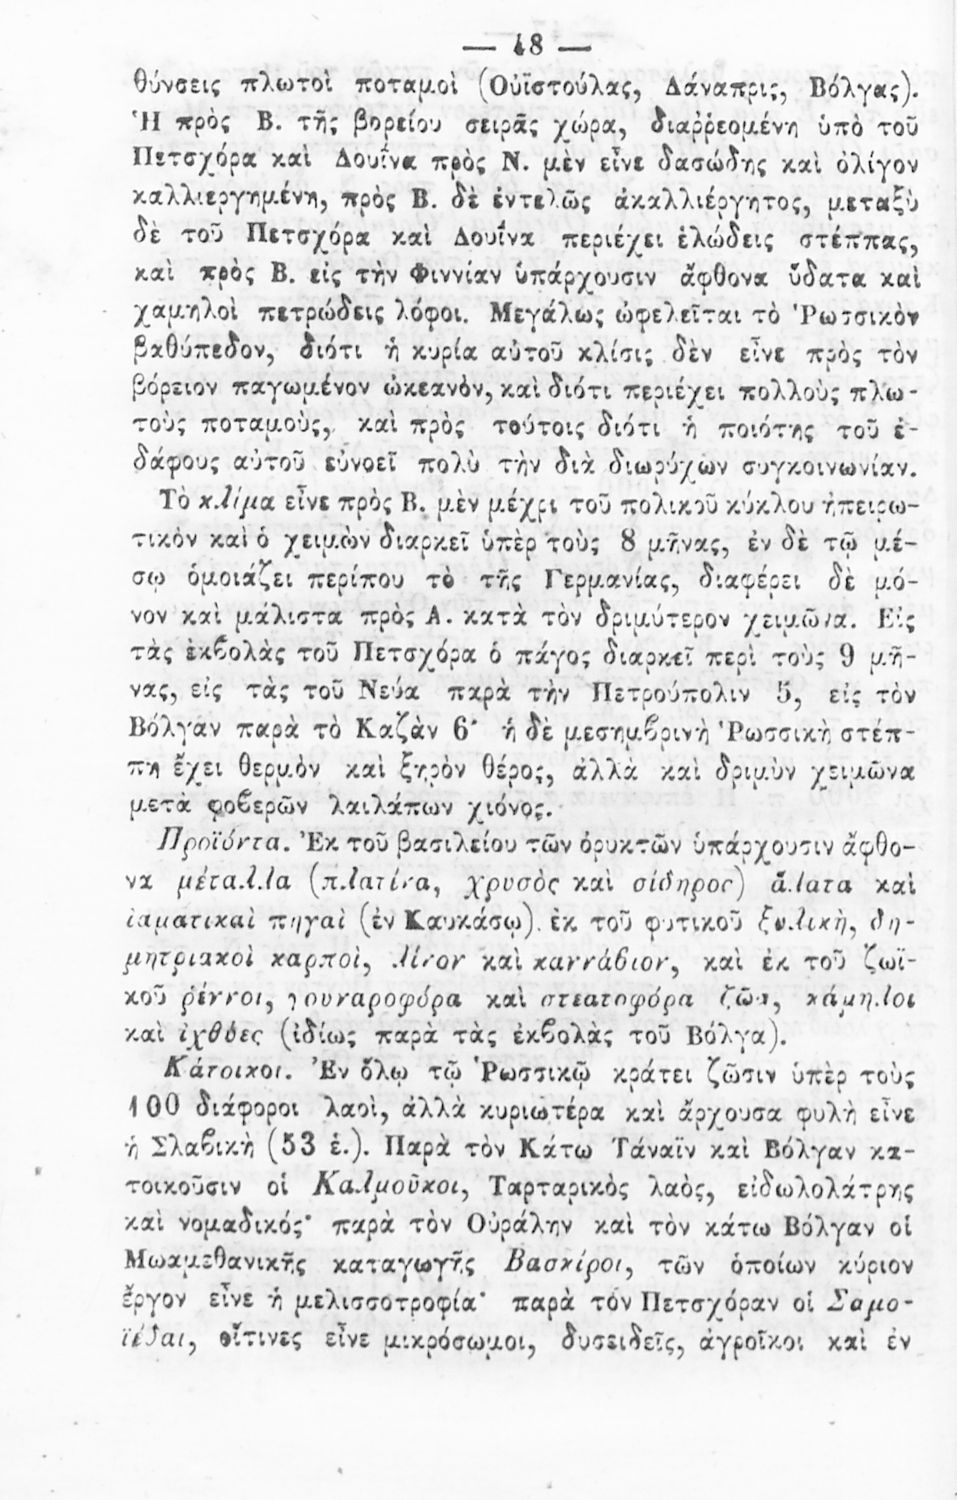 — 48 —
θύνσεις πλωτοὶ ποταμοὶ (Οὐϊστούλας, Δάναπρις, Βόλγας).
Ἡ πρὸς Β. τῆς βορείου σειρᾶς χώρα, διαῤῥεομένη ὑπὸ τοῦ
Πετσχόρα καὶ Δουΐνα πρὸς Ν. μὲν εἶνε δασώδης καὶ ὀλίγον
καλλιεργημένη, πρὸς Β. δὲ ἐντελῶς ἀκαλλιέργητος, μεταξὺ
δὲ τοῦ Πετσχόρα καὶ Δουΐνα περιέχει ἑλώδεις στέππας,
καὶ πρὸς Β. εἰς τὴν Φιννίαν ὑπάρχουσιν ἄφθονα ὕδατα καὶ
χαμηλοὶ πετρώδεις λόφοι. Μεγάλως ὠφελεῖται τὸ Ῥωσσικὸν
βαθύπεδον, διότι ἡ κυρία αὐτοῦ κλίσις δὲν εἶνε πρὸς τὸν
βόρειον παγωμένον ὠκεανὸν, καὶ διότι περιέχει πολλοὺς πλω-
τοὺς ποταμοὺς, καὶ πρὸς τούτοις διότι ἡ ποιότης τοῦ ἐ-
δάφους αὐτοῦ εὐνοεῖ πολὺ τὴν διὰ διωρύχων συγκοινωνίαν.
Τὸ κλίμα εἶνε πρὸς Β. μὲν μέχρι τοῦ πολικοῦ κύκλου ἠπειρω-
τικὸν καὶ ὁ χειμὼν διαρκεῖ ὑπὲρ τοὺς 8 μῆνας, ἐν δὲ τῷ μέ-
σῳ ὁμοιάζει περίπου τὸ τῆς Γερμανίας, διαφέρει δὲ μό-
νον καὶ μάλιστα πρὸς Α. κατὰ τὸν δριμύτερον χειμῶνα. Εἰς
τὰς ἐκβολὰς τοῦ Πετσχόρα ὁ πάγος διαρκεῖ περὶ τοὺς 9 μῆ-
νας, εἰς τὰς τοῦ Νεύα παρὰ τὴν Πετρούπολιν 5, εἰς τὸν
Βόλγαν παρὰ τὸ Καζὰν 6· ἡ δὲ μεσημβρινὴ Ῥωσσικὴ στέπ-
πη ἔχει θερμὸν καὶ ξηρὸν θέρος, ἀλλὰ καὶ δριμὺν χειμῶνα
μετὰ φοβερῶν λαιλάπων χιόνος.
Προϊόντα. Ἐκ τοῦ βασιλείου τῶν ὀρυκτῶν ὑπάρχουσιν ἄφθο-
να μέταλλα (πλατίνα, χρυσὸς καὶ σίδηρος) ἅλατα καὶ
ἰαματικαὶ πηγαὶ (ἐν Καυκάσῳ). ἐκ τοῦ φυτικοῦ ξυλικὴ, δη-
μητριακοὶ καρποὶ, λίνον καὶ καννάβιον, καὶ ἐκ τοῦ ζωϊ-
κοῦ ῥέννοι, γουναροφόρα καὶ στεατοφόρα ζῶα, κάμηλοι
καὶ ἰχθύες (ἰδίως παρὰ τὰς ἐκβολὰς τοῦ Βόλγα).
Κάτοικοι. Ἐν ὅλῳ τῷ Ῥωσσικῷ κράτει ζῶσιν ὑπὲρ τοὺς
100 διάφοροι λαοὶ, ἀλλὰ κυριωτέρα καὶ ἄρχουσα φυλὴ εἶνε
ἡ Σλαβικὴ (53 ἑ.). Παρὰ τὸν Κάτω Τάναϊν καὶ Βόλγαν κα-
τοικοῦσιν οἱ Καλμοῦκοι, Ταρταρικὸς λαὸς, εἰδωλολάτρης
καὶ νομαδικός· παρὰ τὸν Οὐράλην καὶ τὸν κάτω Βόλγαν οἱ
Μωαμεθανικῆς καταγωγῆς Βασκίροι, τῶν ὁποίων κύριον
ἔργον εἶνε ἡ μελισσοτροφία· παρὰ τὸν Πετσχόραν οἱ Σαμο-
ϊέδαι, οἵτινες εἶνε μικρόσωμοι, δυσειδεῖς, ἀγροῖκοι καὶ ἐν